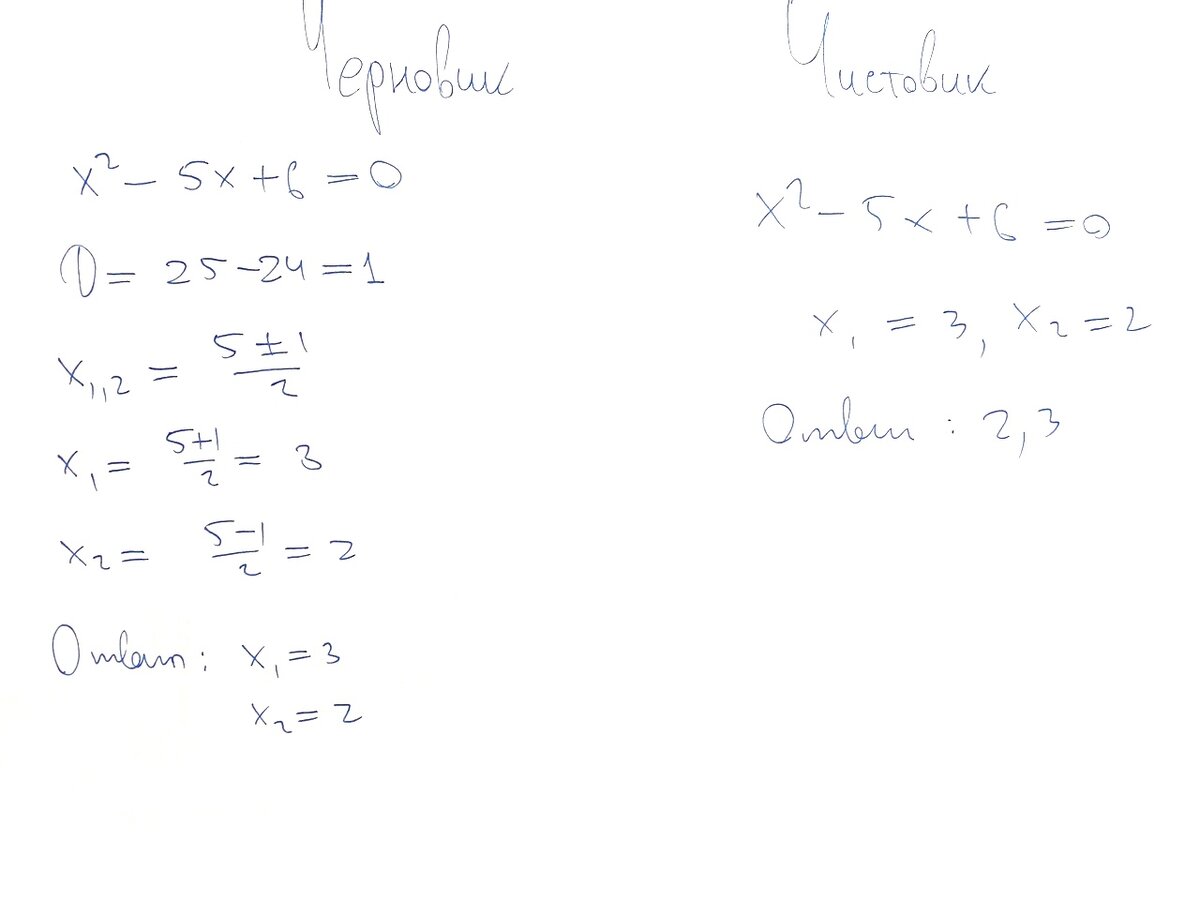 Черновик
x² - 5x + 6 = 0
D = 25 - 24 = 1
x₁,₂ = (5 ± 1)/2
x₁ = (5+1)/2 = 3
x₂ = (5-1)/2 = 2
Ответ: x₁ = 3
x₂ = 2
Чистовик
x² - 5x + 6 = 0
x₁ = 3, x₂ = 2
Ответ: 2, 3